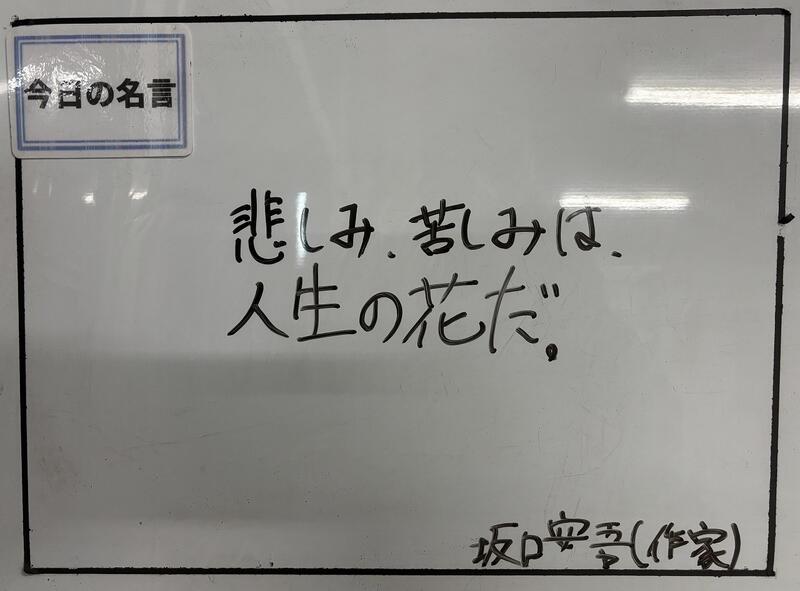 今日の名言
悲しみ、苦しみは、
人生の花だ。
坂口安吾(作家)